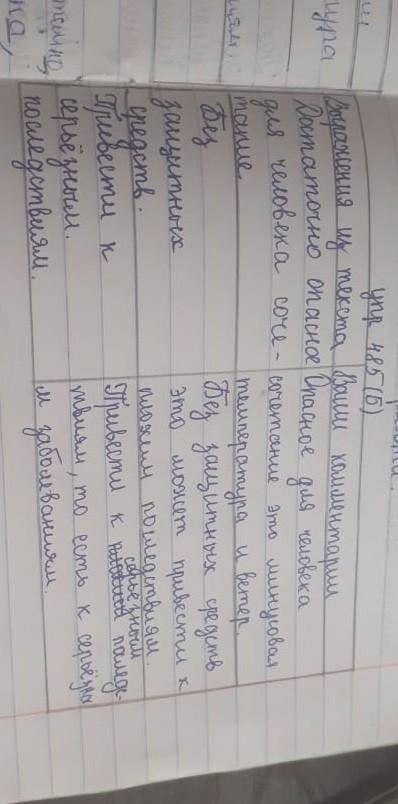 упр 485(Б)
Выражения из текста Ваши комментарии
Достаточно опасное Опасное для человека
для человека соче- сочетание это минусовая
тание. температура и ветер.
Без Без защитных средств
защитных это может привести к
средств. плохим последствиям.
серьёзным
Привести к Привести к послед-
серьёзным. твиям, то есть к серьёзны
последствиям. м заболеваниям.